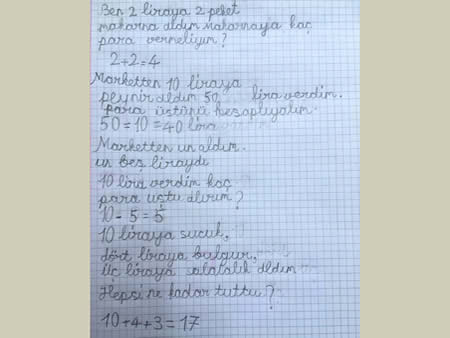 Ben 2 liraya 2 paket
makarna aldım makarnaya kaç
para vermeliyim?
2+2=4
Marketten 10 liraya
peynir aldım 50 lira verdim.
para üstünü hesaplıyalım.
50=10=40 lira
Marketten un aldım.
un beş liraydı
10 lira verdim kaç
para üstü alırım?
10-5=5
10 liraya sucuk,
dört liraya bulgur,
üç liraya salatalık aldım
Hepsi ne kadar tuttu?
10+4+3=17